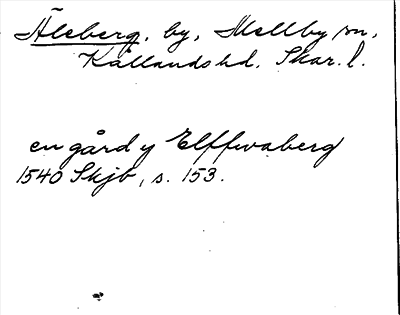 Äleberg, by, Mellby sn,
Kållands hd. Skar. l.
en gård y Elffwaberg
1540 Skjb, s. 153.